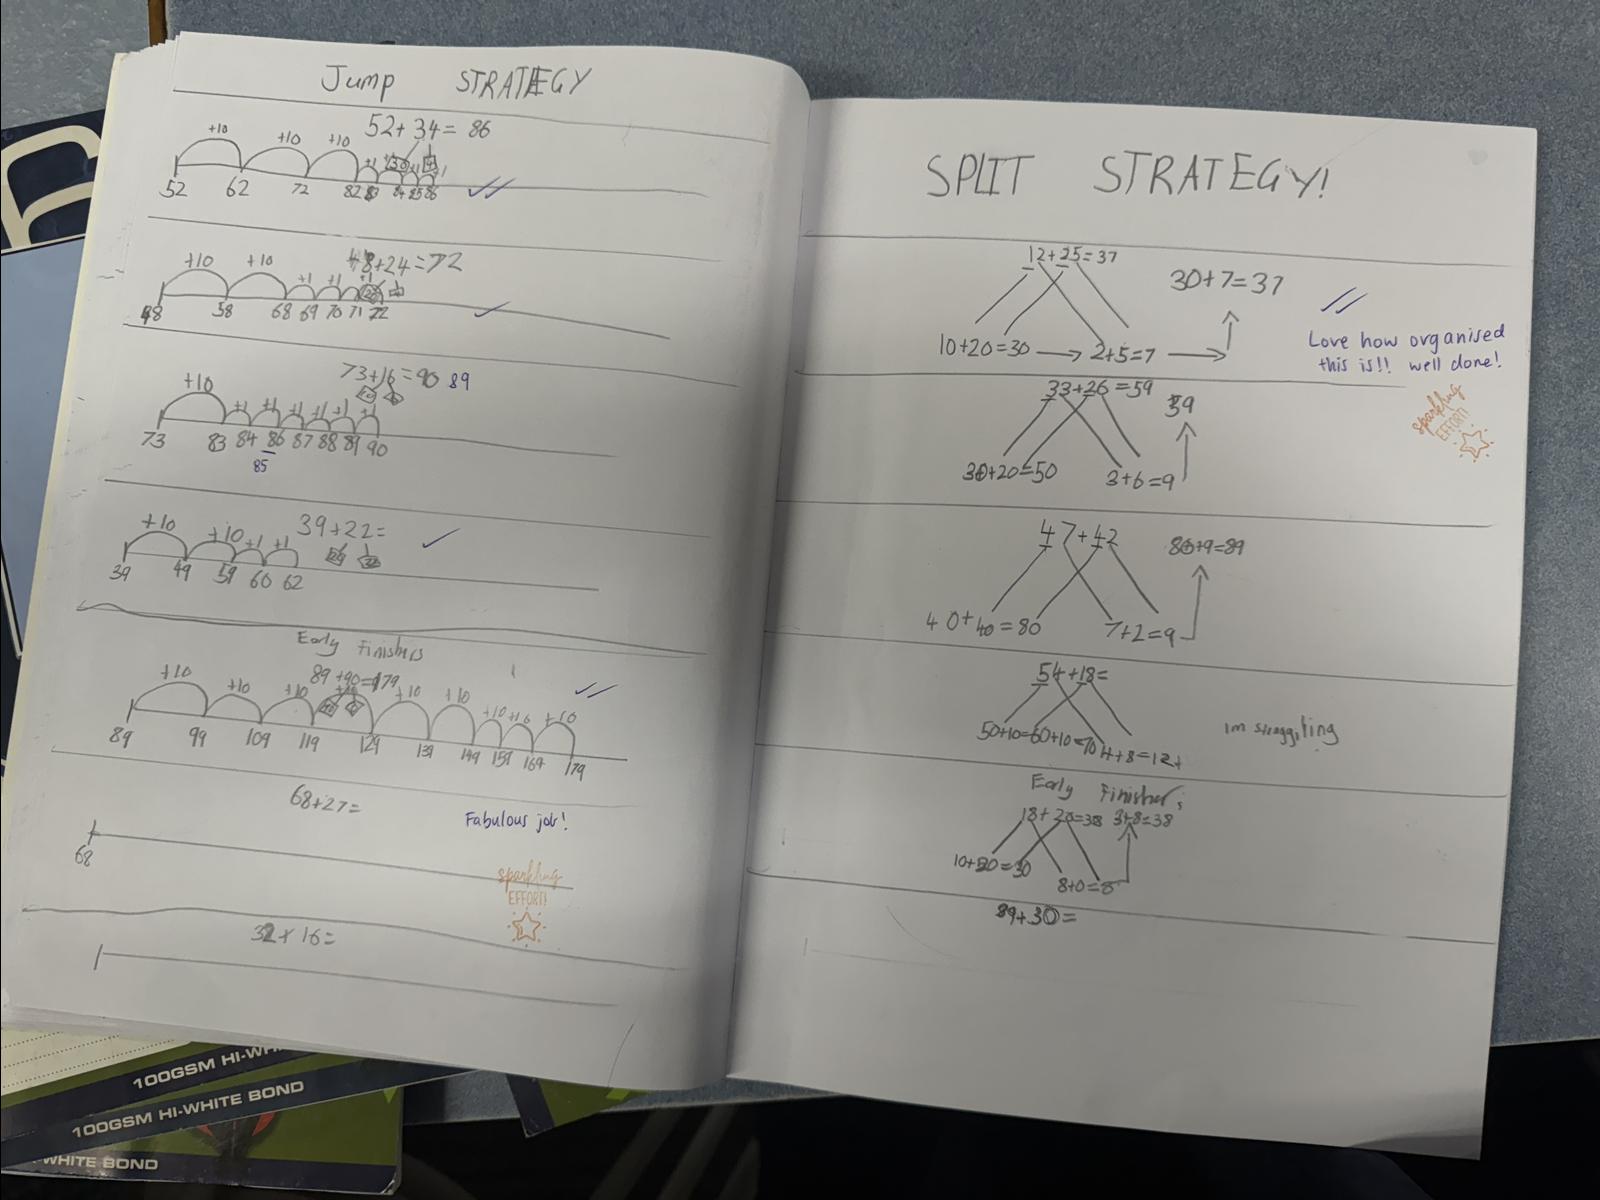 Jump STRATEGY
52+34= 86
+10 +10 +10 +1 +1 +1
30 4
52 62 72 82 83 84 85 86
48+24=72
+10 +10 +1 +1 +1
48 58 68 69 70 71 72
73+16=90 89
+10 +1 +1 +1 +1 +1 +1
73 83 84 86 87 88 89 90
85
39+22=
+10 +10 +1 +1
39 49 59 60 62
Early Finishers
89+90=179
+10 +10 +10 +10 +10 +10 +10 +10
89 99 109 119 129 139 149 159 169 179
68+27=
Fabulous job!
68
sparkling
EFFORT!
32+16=
SPLIT STRATEGY!
12+25=37
30+7=37
10+20=30 → 2+5=7 →
Love how organised
this is!! well done!
sparkling
EFFORT!
33+26=59
59
30+20=50 3+6=9
47+42
80+9=89
40+40=80 7+2=9
54+18=
50+10=60+10=70 4+8=12+
im struggiling
Early Finishers
18+20=38 3+8=38
10+20=30 8+0=8
89+30=
100GSM HI-WHITE BOND
100GSM HI-WHITE BOND
WHITE BOND